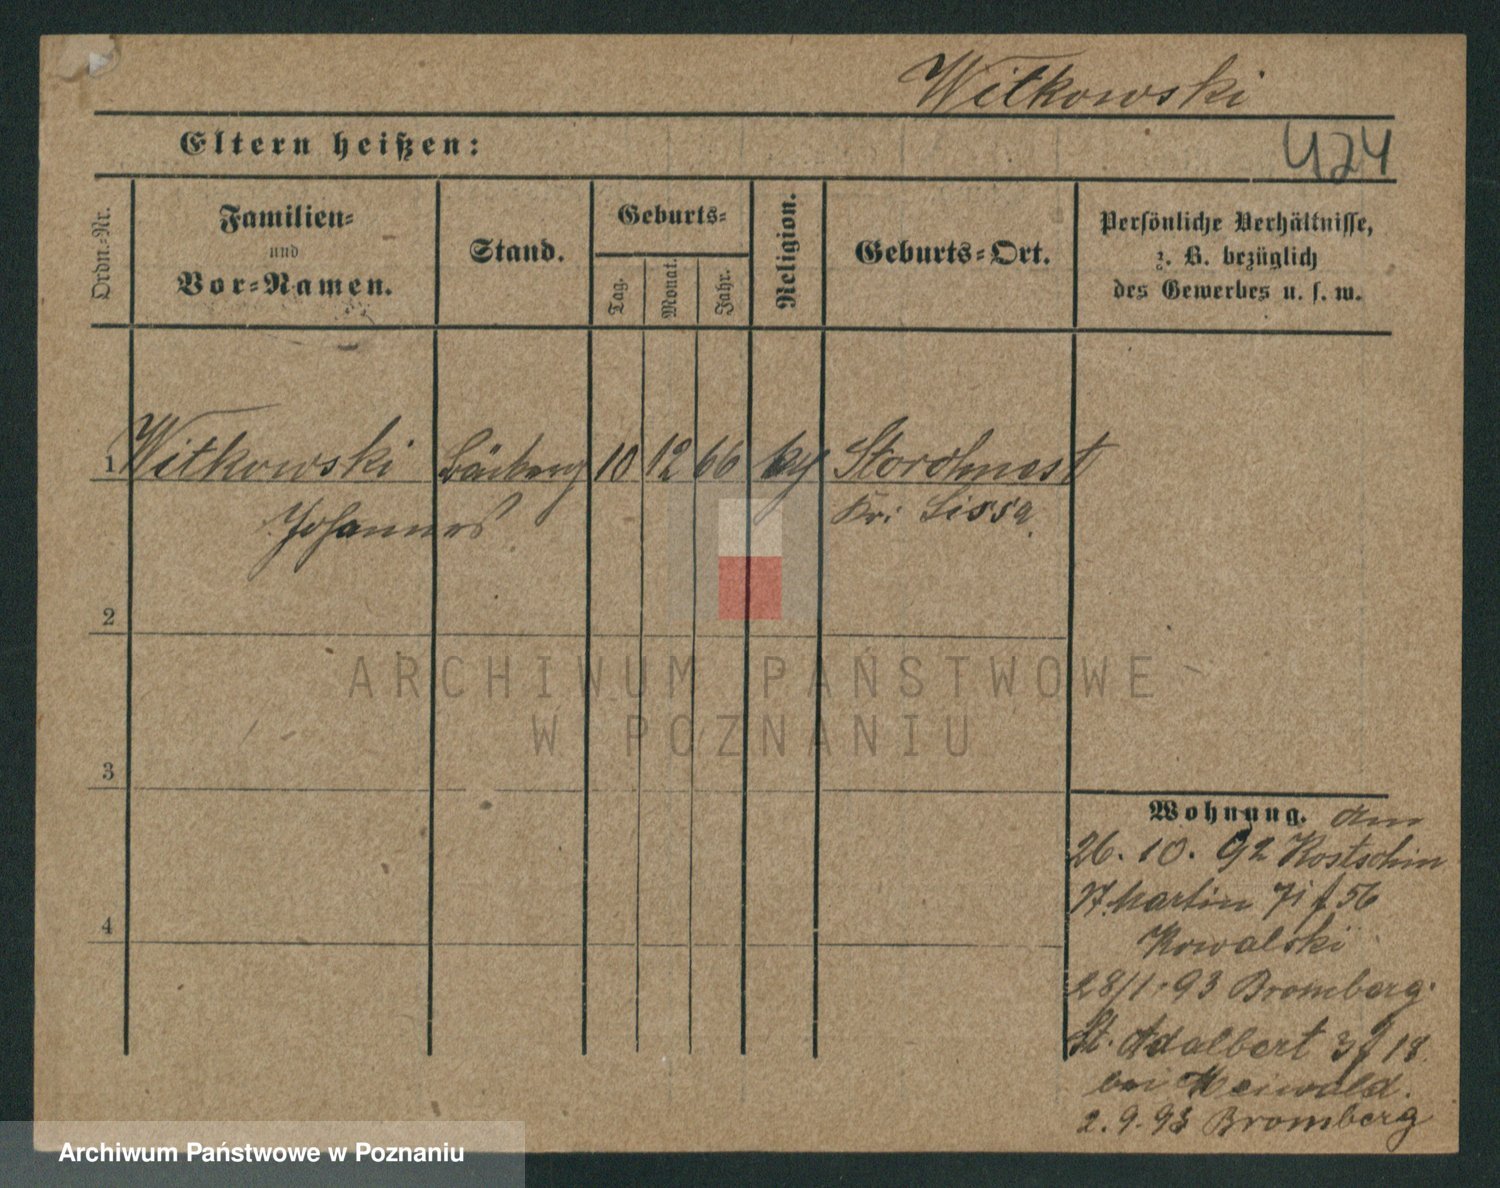 Witkowski
Eltern heißen:
424
Ordn.-Nr.
Familien-
und
Vor-Namen.
Stand.
Geburts-
Tag.
Monat.
Jahr.
Religion.
Geburts-Ort.
Persönliche Verhältnisse,
z. B. bezüglich
des Gewerbes u. s. w.
1 Witkowski 10 12 66 Storchnest
Johannes Kr: Lissa
2
3
4
Wohnung. am
26. 10. 92 Kostschin
St. Martin 71 56
Kowalski
28/1. 93 Bromberg.
St. Adalbert 3 18.
bei Meiwald.
2. 9. 93 Bromberg
ARCHIWUM PAŃSTWOWE
W POZNANIU
Archiwum Państwowe w Poznaniu